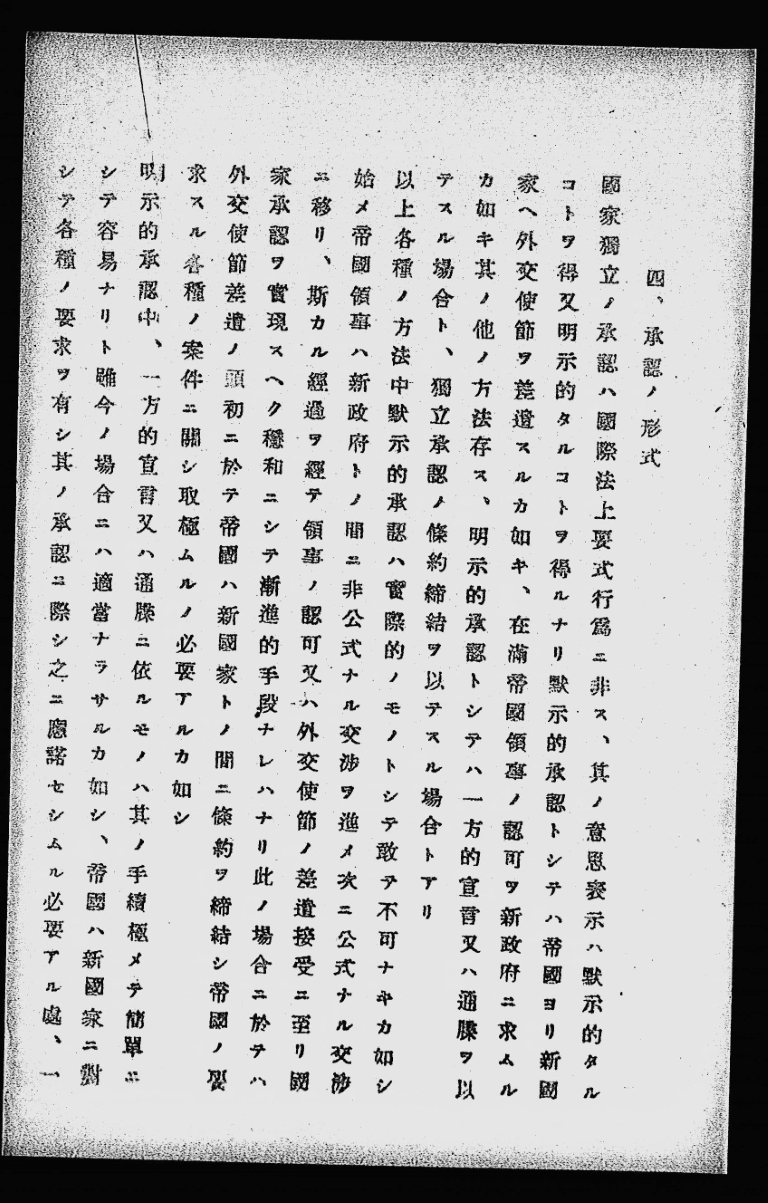 四、承認ノ形式
國家獨立ノ承認ハ國際法上要式行爲ニ非ス、其ノ意思表示ハ默示的タル
コトヲ得又明示的タルコトヲ得ルナリ默示的承認トシテハ帝國ヨリ新國
家ヘ外交使節ヲ差遣スルカ如キ、在滿帝國領事ノ認可ヲ新政府ニ求ムル
カ如キ其ノ他ノ方法存ス、明示的承認トシテハ一方的宣言又ハ通牒ヲ以
テスル場合ト、獨立承認ノ條約締結ヲ以テスル場合トアリ
以上各種ノ方法中默示的承認ハ實際的ノモノトシテ敢テ不可ナキカ如シ
始メ帝國領事ハ新政府トノ間ニ非公式ナル交涉ヲ進メ次ニ公式ナル交涉
ニ移リ、斯カル經過ヲ經テ領事ノ認可又ハ外交使節ノ差遣接受ニ至リ國
家承認ヲ實現スヘク穩和ニシテ漸進的手段ナレハナリ此ノ場合ニ於テハ
外交使節差遣ノ頭初ニ於テ帝國ハ新國家トノ間ニ條約ヲ締結シ帝國ノ要
求スル各種ノ案件ニ關シ取極ムルノ必要アルカ如シ
明示的承認中、一方的宣言又ハ通牒ニ依ルモノハ其ノ手續極メテ簡單ニ
シテ容易ナリト雖今ノ場合ニハ適當ナラサルカ如シ、帝國ハ新國家ニ對
シテ各種ノ要求ヲ有シ其ノ承認ニ際シ之ニ應諾セシムル必要アル處、一